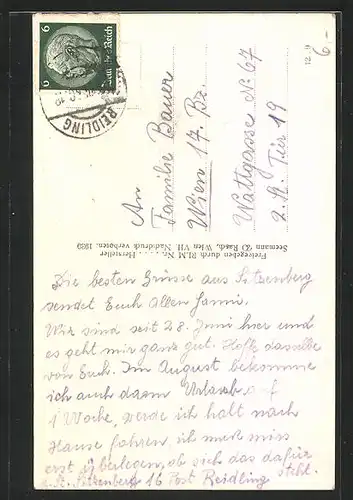 6
Deutsches Reich
REIDLING
12. 9
6-
An
Familie Bauer
Wien 17. Bz.
Wattgasse No 67
2. St. Tür 19
Freigegeben durch RLM Nr. . . . . . Hersteller
Seemann & Raab, Wien VII. Nachdruck verboten. 1939
Die besten Grüsse aus Sitzenberg
sendet Euch allen Hanni.
Wir sind seit 28. Juni hier und
es geht mir ganz gut. Hoffe dasselbe
von Euch. Im August bekomme
ich auch dann Urlaub auf
1 Woche, werde ich halt nach
Hause fahren, ich muss mirs
erst überlegen, ob sich das dafür
steht.
Sitzenberg 16 Post Reidling